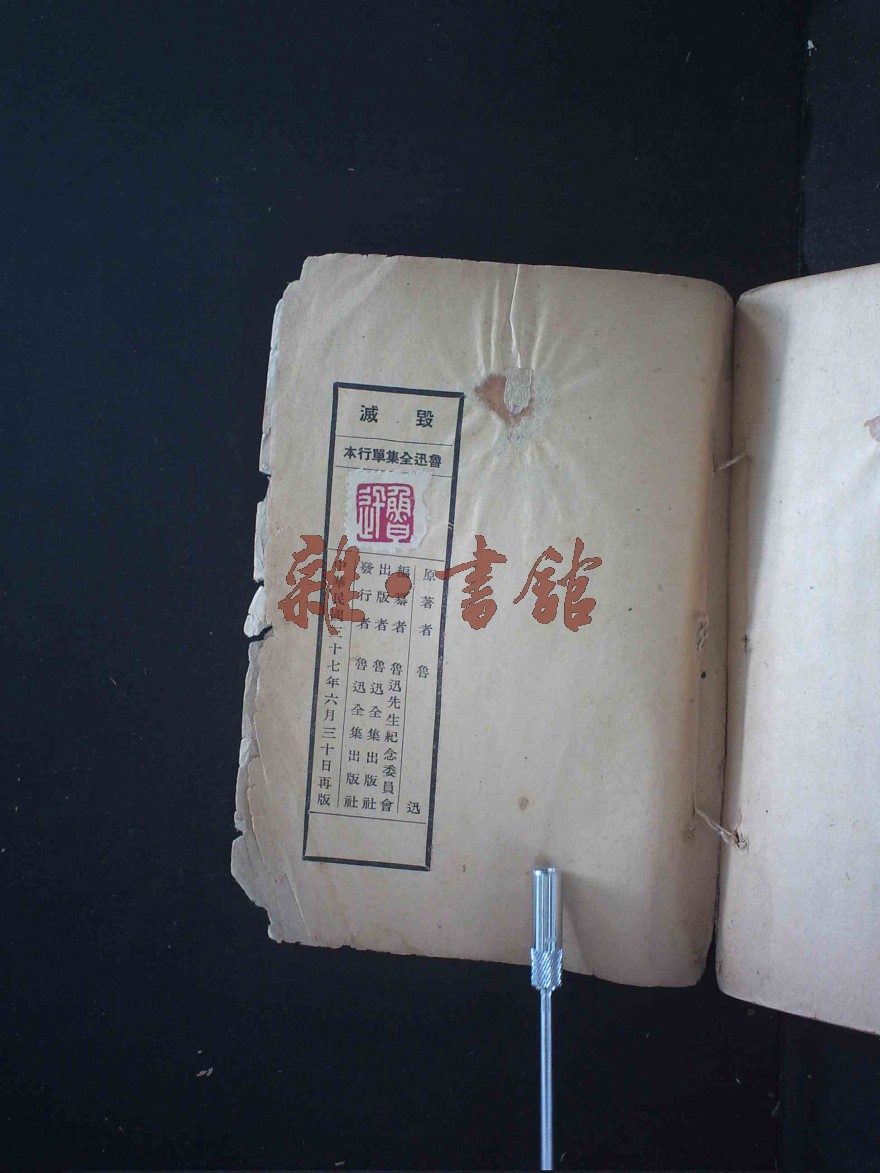 毀滅
魯迅全集單行本
魯迅
原著者 魯迅
編纂者 魯迅先生紀念委員會
出版者 魯迅全集出版社
發行者 魯迅全集出版社
中華民國三十七年六月三十日再版
雜·書館